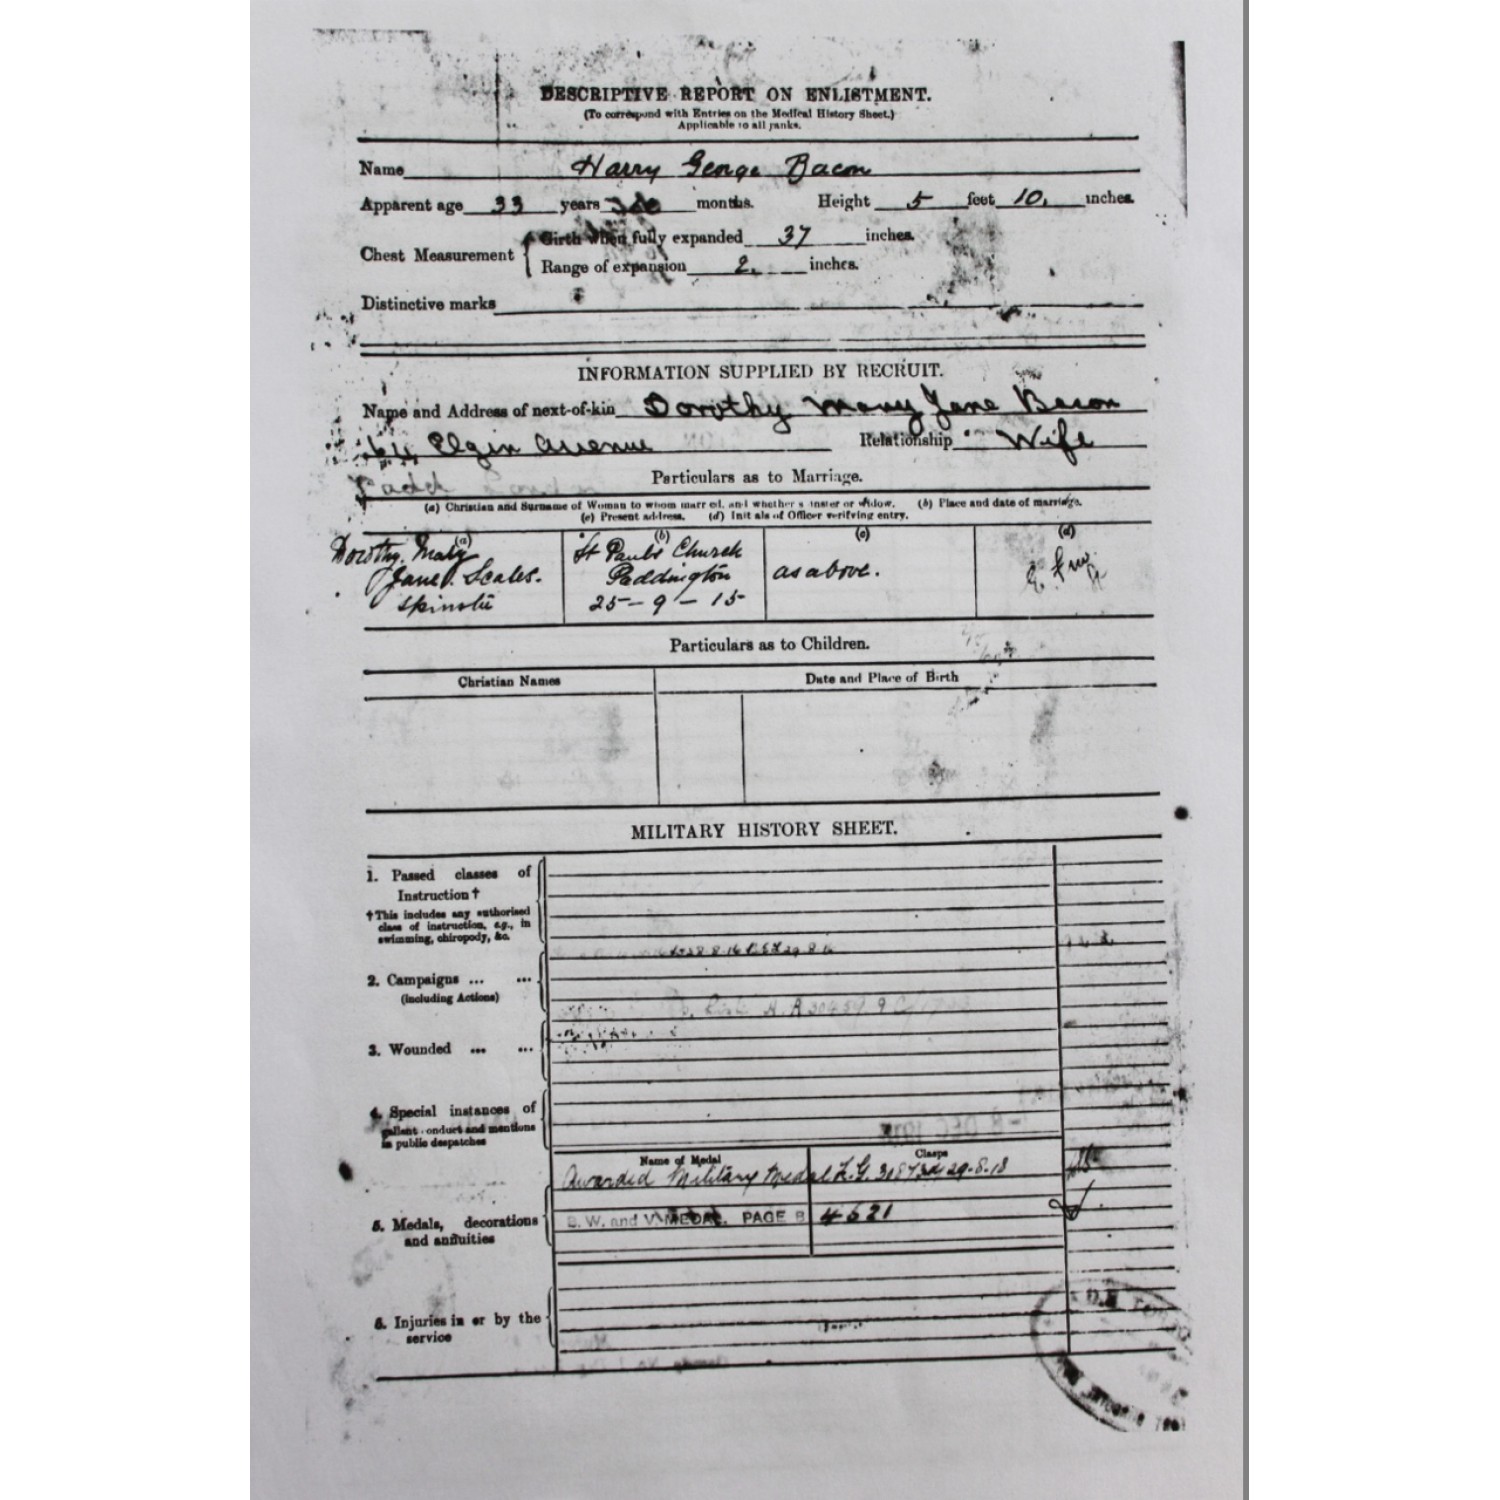 DESCRIPTIVE REPORT ON ENLISTMENT.
(To correspond with Entries on the Medical History Sheet.)
Applicable to all ranks.
Name Harry George Bacon
Apparent age 33 years months. Height 5 feet 10. inches.
Chest Measurement { Girth when fully expanded 37 inches.
Range of expansion 2. inches.
Distinctive marks
INFORMATION SUPPLIED BY RECRUIT.
Name and Address of next-of-kin Dorothy Mary Jane Bacon
64 Elgin Avenue Relationship Wife
Padd London
Particulars as to Marriage.
(a) Christian and Surname of Woman to whom married, and whether spinster or widow. (b) Place and date of marriage.
(c) Present address. (d) Initials of Officer verifying entry.
(a) (b) (c) (d)
Dorothy Mary
Jane Scales.
Spinster
St Pauls Church
Paddington
25-9-15
as above.
Particulars as to Children.
Christian Names Date and Place of Birth
MILITARY HISTORY SHEET.
1. Passed classes of
Instruction †
† This includes any authorised
class of instruction, e.g., in
swimming, chiropody, &c.
2. Campaigns ... ...
(including Actions)
3. Wounded ... ...
4. Special instances of
gallant conduct and mentions
in public despatches
Name of Medal Clasps
Awarded Military Medal L.G. 29.8.18
5. Medals, decorations
and annuities
B. W. and V. MEDAL. PAGE B 4621
6. Injuries in or by the
service